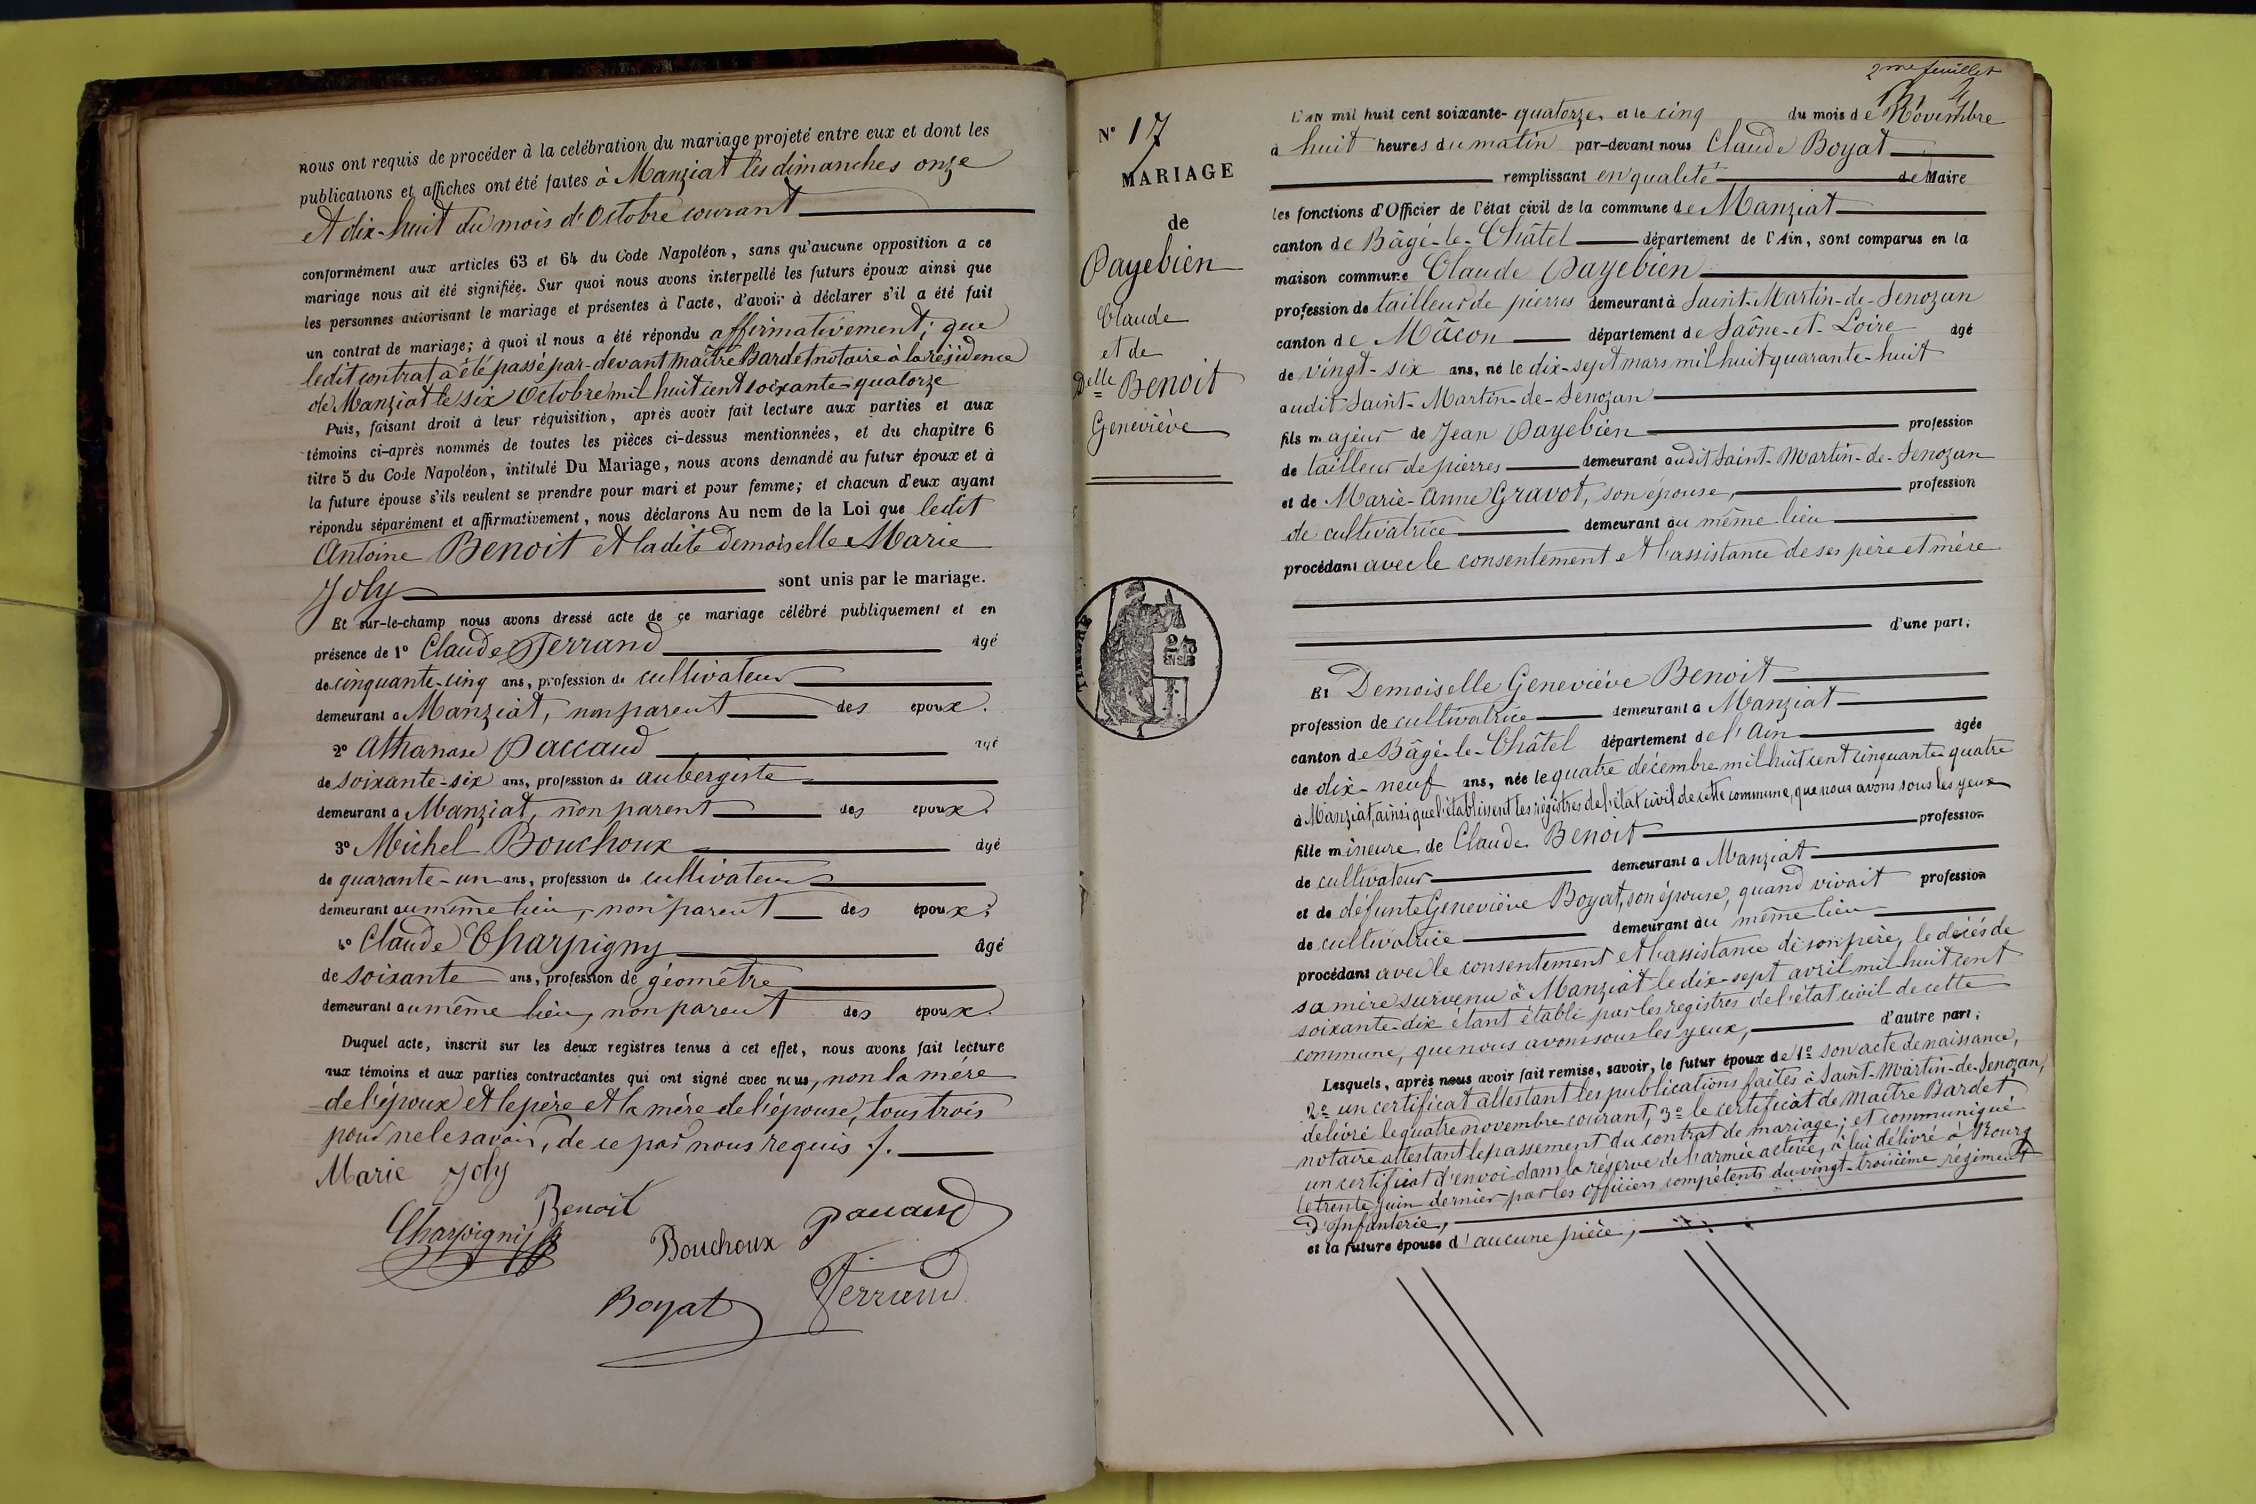 nous ont requis de procéder à la celébration du mariage projeté entre eux et dont les
publications et affiches ont été faites à Manziat les dimanches onze
et dix-huit du mois d'Octobre courant
conformément aux articles 63 et 64 du Code Napoléon, sans qu'aucune opposition a ce
mariage nous ait été signifiée. Sur quoi nous avons interpellé les futurs époux ainsi que
les personnes autorisant le mariage et présentes à l'acte, d'avoir à déclarer s'il a été fait
un contrat de mariage; à quoi il nous a été répondu affirmativement; que
ledit contrat a été passé par-devant maître Bardet notaire à la résidence
de Manziat le six Octobre mil huit cent soixante-quatorze
Puis, faisant droit à leur réquisition, après avoir fait lecture aux parties et aux
témoins ci-après nommés de toutes les pièces ci-dessus mentionnées, et du chapitre 6
titre 5 du Code Napoléon, intitulé Du Mariage, nous avons demandé au futur époux et à
la future épouse s'ils veulent se prendre pour mari et pour femme; et chacun d'eux ayant
répondu séparément et affirmativement, nous déclarons Au nom de la Loi que ledit
Antoine Benoit et ladite demoiselle Marie
Joly sont unis par le mariage.
Et sur-le-champ nous avons dressé acte de ce mariage célébré publiquement et en
présence de 1° Claude Ferrand âgé
de cinquante-cinq ans, profession de cultivateur
demeurant a Manziat, non parent des époux.
2° Athanase Paccaud âgé
de soixante-six ans, profession de aubergiste
demeurant a Manziat, non parent des époux.
3° Michel Bouchoux âgé
de quarante-un ans, profession de cultivateur
demeurant au même lieu, non parent des époux.
4° Claude Charpigny âgé
de soixante ans, profession de géomètre
demeurant au même lieu, non parent des époux.
Duquel acte, inscrit sur les deux registres tenus à cet effet, nous avons fait lecture
aux témoins et aux parties contractantes qui ont signé avec nous, non la mère
de l'époux et le père et la mère de l'épouse, tous trois
pour ne le savoir, de ce par nous requis /.
Marie Joly
Benoit
Charpigny
Bouchoux
Paccaud
Boyat
Ferrand
2me feuillet
N° 17
MARIAGE
de
Payebien
Claude
et de
Delle Benoit
Geneviève
L'AN mil huit cent soixante-quatorze, et le cinq du mois de Novembre
à huit heures du matin par-devant nous Claude Boyat
remplissant en qualité de Maire
les fonctions d'Officier de l'état civil de la commune de Manziat
canton de Bâgé-le-Châtel département de l'Ain, sont comparus en la
maison commune Claude Payebien
profession de tailleur de pierres demeurant à Saint-Martin-de-Senozan
canton de Mâcon département de Saône-et-Loire âgé
de vingt-six ans, né le dix-sept mars mil huit quarante-huit
audit Saint-Martin-de-Senozan
fils majeur de Jean Payebien profession
de tailleur de pierres demeurant audit Saint-Martin-de-Senozan
et de Marie-Anne Gravot, son épouse, profession
de cultivatrice demeurant au même lieu
procédant avec le consentement et l'assistance de ses père et mère
d'une part;
Et Demoiselle Geneviève Benoit
profession de cultivatrice demeurant a Manziat
canton de Bâgé-le-Châtel département de l'Ain âgée
de dix-neuf ans, née le quatre décembre mil huit cent cinquante-quatre
à Manziat, ainsi que l'établissent les régistres de l'état civil de cette commune, que nous avons sous les yeux
fille mineure de Claude Benoit profession
de cultivateur demeurant a Manziat
et de défunte Geneviève Boyat, son épouse, quand vivait profession
de cultivatrice demeurant au même lieu
procédant avec le consentement et l'assistance de son père, le décès de
sa mère survenu à Manziat le dix-sept avril mil huit cent
soixante-dix étant établi par les registres de l'état civil de cette
commune, que nous avons sous les yeux, d'autre part;
Lesquels, après nous avoir fait remise, savoir, le futur époux de 1° son acte de naissance,
2° un certificat attestant les publications faites à Saint-Martin-de-Senozan,
délivré le quatre novembre courant, 3° le certificat de Maître Bardet
notaire attestant le passement du contrat de mariage; et communiqué
un certificat d'envoi dans la réserve de l'armée active, à lui délivré à Bourg
le trente juin dernier par les officiers compétents du vingt-troisième régiment
D'Infanterie,
et la future épouse d'aucune pièce,